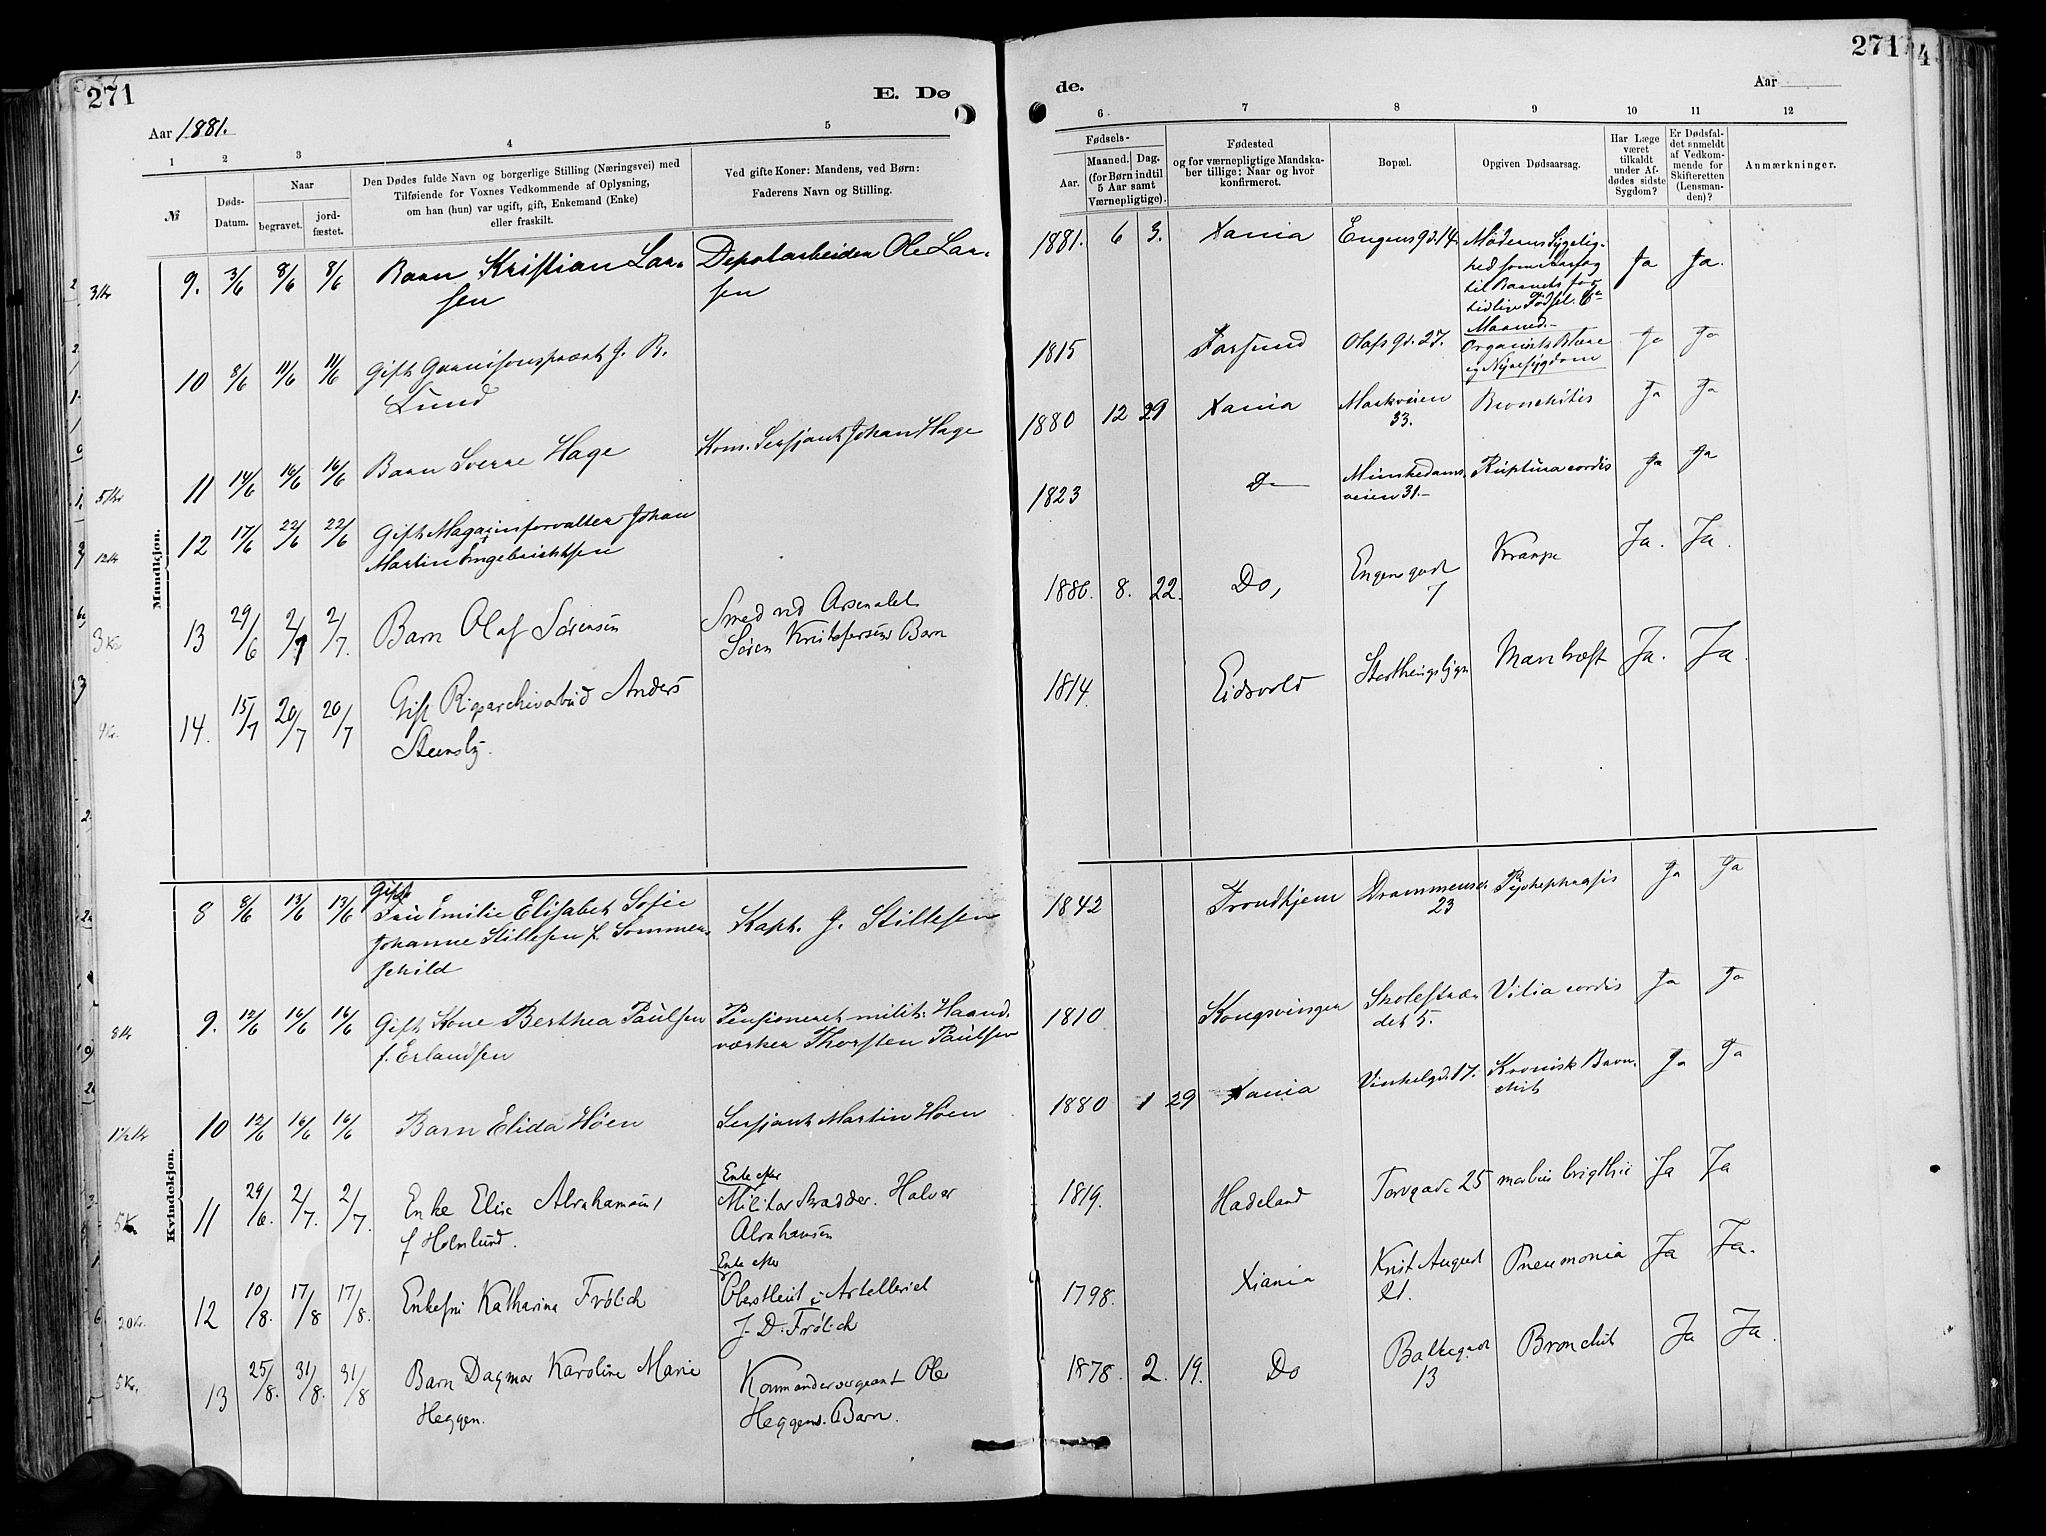 271
E. Dø
de.
271
4
Aar 1881.
Aar
1 2 3 4 5
6 7 8 9 10 11 12
№
Døds-
Datum.
Naar
begravet.
jord-
fæstet.
Den Dødes fulde Navn og borgerlige Stilling (Næringsvei) med
Tilføiende for Voxnes Vedkommende af Oplysning,
om han (hun) var ugift, gift, Enkemand (Enke)
eller fraskilt.
Ved gifte Koner: Mandens, ved Børn:
Faderens Navn og Stilling.
Fødsels-
Aar.
Maaned. Dag.
(for Børn indtil
5 Aar samt
Værnepligtige).
Fødested
og for værnepligtige Mandska-
ber tillige: Naar og hvor
konfirmeret.
Bopæl.
Opgiven Dødsaarsag.
Har Læge
været
tilkaldt
under Af-
dødes sidste
Sygdom?
Er Dødsfal-
det anmeldt
af Vedkom-
mende for
Skifteretten
(Lensman-
den)?
Anmærkninger.
Mandkjøn.
3 Kr 9. 3/6 8/6 8/6 Barn Kristian Lar- Depotarbeider Ole Lar- 1881. 6 3. Xania Engensgd. 14. Moderens Sygelig-
sen sen hed som Aarsag Ja Ja.
til Barnets for
tidlige Fødsel.
Maaned.
10 8/6 11/6 11/6 Gift Garnisonsprovst J. B. 1815 Farsund Olafsgd. 27. Organisk Blære Ja Ja
Lund og Nyresygdom
5 Kr 11 14/6 16/6 16/6 Barn Sverre Hage Kom. Sersjant Johan Hage 1880 12 29 Xania Markveien Bronchitis Ja Ja
33.
12 Kr 12 17/6 22/6 22/6 Gift Magazinforvalter Johan 1823 D— Munkedams- Ruptura cordis Ja Ja
Martin Engebrichtsen veien 31.-
3 Kr 13 29/6 2/7 2/7. Barn Olaf Sörensen Smed ved Arsenalet 1880. 8. 22. Do, Engensgad Krampe Ja. Ja.
Sören Kristofersens Barn 7
4 Kr. 14. 15/7 20/7 20/7 Gift Rigsarchivarbud Anders 1814. Eidsvold Ja. Ja.
Steensby.
Kvindekjøn.
8 8/6 13/6 13/6 Gift
Frue Emilie Elisabet Sofie Kapt. G. Stillesen 1842 Trondhjem Drammensv. Ja Ja
Johanne Stillesen f. Sommer- 23
schild
8 Kr 9. 12/6 16/6 16/6 Gift Kone Berthea Paulsen Pensioneret milit. Haand- 1810 Kongsvinger Skolestræ- Vitia cordis Ja Ja
f. Erlandsen værker Thorsten Paulsen det 5.
1½ Kr 10 12/6 16/6 16/6 Barn Elida Höen Sersjant Martin Höen 1880 1 29 Xania Vinkelgd. 17. Kronisk Bron- Ja Ja
chit
5 Kr 11 29/6. 2/7. 2/7. Enke Elise Abrahamsen Enke efter
f Holmlund. Militær Halvor 1819. Hadeland Torvgade 25 morbus brigthii Ja Ja
Abrahamsen
20 Kr. 12 10/8. 17/8 17/8. Enkefru Katharina Frölich Enke efter
Oberstleut i Artelleriet 1798. Xiania Krist August Pneumonia Ja Ja.
J. D. Frölich 21.
5 Kr. 13 25/8. 31/8. 31/8 Barn Dagmar Karoline Marie Kommandersergeant Ole 1878. 2. 19. Do Bakkegad Bronchit Ja Ja.
Heggen. Heggens. Barn. 13